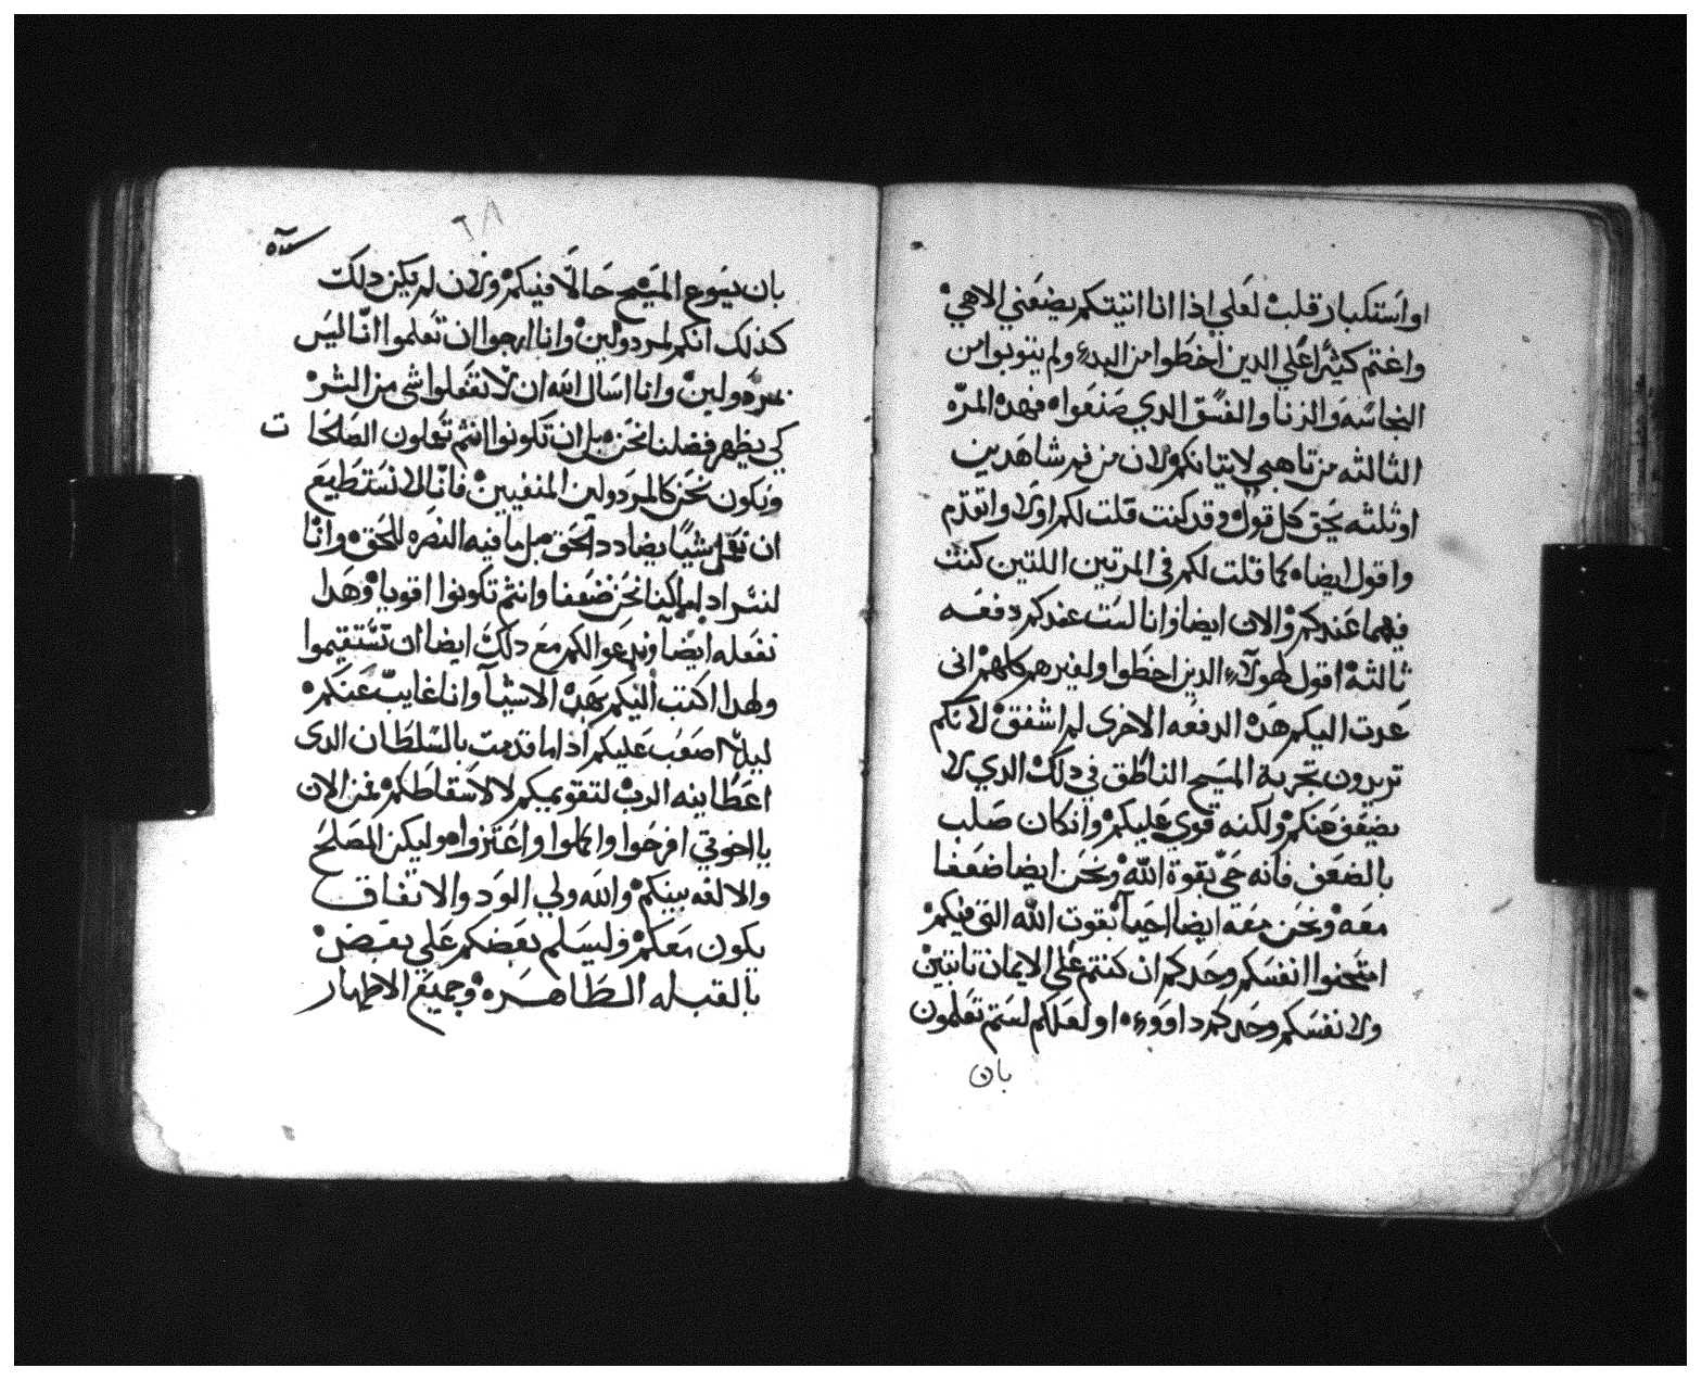 او استكبار قلب لعلي اذا انا اتيتكم يضعني الاهي
واغتم كثيرًا علي الدين اخطوا من البدء ولم يتوبوا من
النجاسه والزنا والفسق الدي صنعواه فهده المره
الثالثه من تاهبي لاتيانكم ولان من فم شاهدين
او ثلثه يحق كل قول وقد كنت قلت لكم اولا واتقدم
واقول ايضاه كما قلت لكم في المرتين اللتين كنت
فيهما عندكم والان ايضا وانا لست عندكم دفعه
ثالثه اقول لهولآء الدين اخطوا ولغيرهم كلهم انى
عدت اليكم هده الدفعه الاخرى لم اشفق لانكم
تريدون تجربة المسيح الناطق في دلك الدي لا
يضعف منكم ولكنه قوي عليكم وان كان صلب
بالضعف فانه حى بقوة الله ونحن ايضا ضعفا
معه ونحن معه ايضا احيآ بقوت الله التى فيكم
امتحنوا انفسكم وحدكم ان كنتم على الايمان تابتين
ولانفسكم وحدكم داووءه او لعلكم لستم تعلمون
بان
٢٨
بان يسوع المسيح حالًا فيكم ولان لم يكن دلك
كذلك انكم لمردولين وانا ارجوا ان تعلموا انّا ليس
بمردولين وانا اسال الله ان لا تفعلوا شى من الشر
كي يظهر فضلنا نحن بل ان تكونوا انتم تعملون الصالحا ت
ونكون نحن كالمردولين المنفيين فانّا لا نستطيع
ان نعمل شيًا يضادد الحق بل ما فيه النصره للحق وانّا
لنسر ادا ما كنا نحن ضعفا وانتم تكونوا اقويا وهدا
نفعله ايضآ وندعوا لكم مع دلك ايضا ان تستقيموا
ولهدا اكتب اليكم بهده الاشيآ وانا غايب عنكم
ليلا اصعب عليكم اذا ما قدمت بالسلطان الدى
اعطاينه الرب لتقويمكم لا لاسقاطكم فمن الان
يااخوتي افرحوا واكملوا واعتزواه وليكن الصلح
والالفه بينكم والله ولي الود والاتفاق
يكون معكم وليسلم بعضكم علي بعض
بالقبله الطاهره وجميع الاطهار